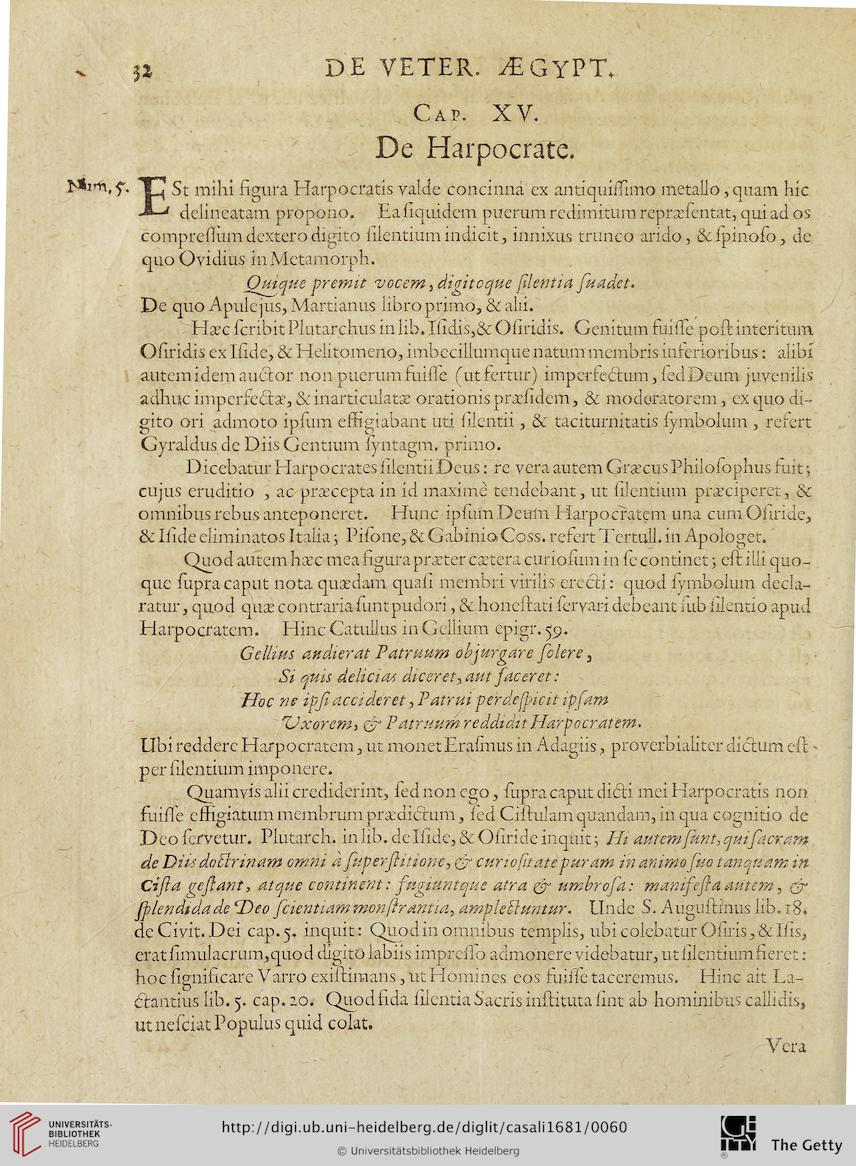 32 DE VETER. ÆGYPT.
CAP. XV.
De Harpocrate.
Num. 5. ESt mihi figura Harpocratis valde concinna ex antiquiſſimo metallo, quam hic
delineatam propono. Ea ſiquidem puerum redimitum repræſentat, qui ad os
compreſſum dextero digito ſilentium indicit, innixus trunco arido, & ſpinoſo, de
quo Ovidius in Metamorph.
Quique premit vocem, digitoque ſilentia ſuadet.
De quo Apulejus, Martianus libro primo, & alii.
Hæc ſcribit Plutarchus in lib. Iſidis, & Oſiridis. Genitum fuiſſe poſt interitum
Oſiridis ex Iſide, & Helitomeno, imbecillumque natum membris inferioribus: alibi
autem idem auctor non puerum fuiſſe (ut fertur) imperfectum, ſed Deum juvenilis
adhuc imperfectæ, & inarticulatæ orationis præſidem, & moderatorem, ex quo di-
gito ori admoto ipſum effigiabant uti ſilentii, & taciturnitatis ſymbolum, refert
Gyraldus de Diis Gentium ſyntagm. primo.
Dicebatur Harpocrates ſilentii Deus: re vera autem Græcus Philoſophus fuit;
cujus eruditio, ac præcepta in id maximè tendebant, ut ſilentium præciperet, &
omnibus rebus anteponeret. Hunc ipſum Deum Harpocratem una cum Oſiride,
& Iſide eliminatos Italia; Piſone, & Gabinio Coss. refert Tertull. in Apologet.
Quod autem hæc mea figura præter cætera curioſum in ſe continet; eſt illi quo-
que ſupra caput nota quædam quaſi membri virilis erecti: quod ſymbolum decla-
ratur, quod quæ contraria ſunt pudori, & honeſtati ſervari debeant ſub ſilentio apud
Harpocratem. Hinc Catullus in Gellium epigr. 59.
Gellius audierat Patruum objurgare ſolere,
Si quis delicias diceret, aut faceret:
Hoc ne ipſi accideret, Patrui perdeſpicit ipſam
Uxorem, & Patruum reddidit Harpocratem.
Ubi reddere Harpocratem, ut monet Eraſmus in Adagiis, proverbialiter dictum eſt
per ſilentium imponere.
Quamvis alii crediderint, ſed non ego, ſupra caput dicti mei Harpocratis non
fuiſſe effigiatum membrum prædictum, ſed Ciſtulam quandam, in qua cognitio de
Deo ſervetur. Plutarch. in lib. de Iſide, & Oſiride inquit; Hi autem ſunt, qui ſacram
de Diis doctrinam omni à ſuperſtitione, & curioſitate puram in animo ſuo tanquam in
Ciſta geſtant, atque continent: fugiuntque atra & umbroſa: manifeſta autem, &
ſplendida de Deo ſcientiam monſtrantia, amplectuntur. Unde S. Auguſtinus lib. 18.
de Civit. Dei cap. 5. inquit: Quod in omnibus templis, ubi colebatur Oſiris, & Iſis,
erat ſimulacrum, quod digitô labiis impreſſo admonere videbatur, ut ſilentium fieret:
hoc ſignificare Varro exiſtimans, ut Homines eos fuiſſe taceremus. Hinc ait La-
ctantius lib. 5. cap. 20. Quod fida ſilentia Sacris inſtituta ſint ab hominibus callidis,
ut neſciat Populus quid colat.
Vera
UNIVERSITÄTS-
BIBLIOTHEK
HEIDELBERG
http://digi.ub.uni-heidelberg.de/diglit/casali1681/0060
© Universitätsbibliothek Heidelberg
GETTY
®
The Getty